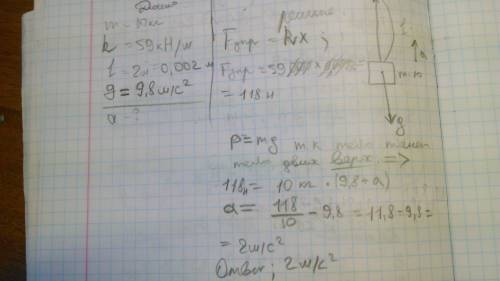 Дано
m = 10кг
k = 59кН/м
l = 2м = 0,002 м
g = 9,8 м/с²
a - ?
решение
Fупр = kx ;
Fупр = 59
= 118н
l
a
m
g
P = mg т.к тело
тело движ вверх =>
118н = 10 кг · (9,8 + a)
a = 118/10 - 9,8 = 11,8 - 9,8 =
= 2м/с²
Ответ ; 2 м/с²